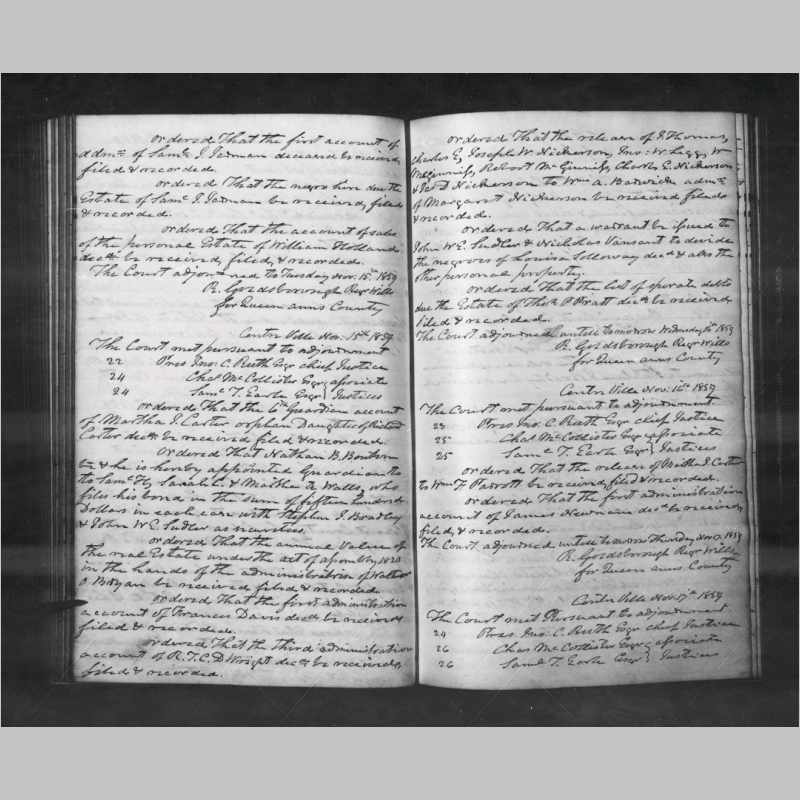 ordered That the first account of
adm.r of Sam.l J. Jarman deceased be received
filed & recorded.
ordered That the negro hire due the
Estate of Sam.l J. Jarman be received, filed
& recorded.
ordered That the account of sales
of the personal Estate of William Holland
dec.d be received, filed, & recorded.
The Court adjourned to Tuesday Nov. 15th 1859
R. Goldsborough Reg.r Wills
for Queen anns County
Centre Ville Nov. 15th 1859
The Court met pursuant to adjournment
22 Pres Jno. C. Ruth Esqr chief Justice
24 Chas Mc Collister Esqr } associate
24 Sam.l T. Earle Esqr } Justices
ordered That the 6th Guardian account
of Martha J. Carter orphan Daughter of Richard
Carter dec.d be received filed & recorded.
ordered That Nathan B.
be & he is hereby appointed Guardian to
to Sam.l H, Sarah E. & Martha A. Watts, who
files his bond in the sum of fifteen hundred
Dollars in each case with Stephen J. Bradley
& John W. E. Sudler as sureties.
ordered That the annual Value of
the real Estate under the act of assembly 1820
in the hands of the administratrix of Walter
O Bryan be received filed & recorded.
ordered That the first administration
account of Francis Davis dec.d be received
filed & recorded.
ordered That the third administration
account of R. T. C. D. Wright dec.d be received,
filed & recorded.
ordered That the release of J. Thomas,
Charles E, Joseph W. Nickerson, Jno. W. Legg, Wm
McGinniss, Robert McGinniss, Charles E. Nickerson
& Nickerson to Wm A. Barwick adm.r
of Margarett Nickerson be received filed
& recorded.
ordered That a warrant be issued to
John W. E. Sudler & Nicholas Vansant to divide
the negroes of Louisa Holloway dec.d & also the
other personal property.
ordered That the list of sperate debts
due the Estate of Tho.s P. Pratt dec.d be received
filed & recorded.
The Court adjourned untill tomorrow Wednesday 16th 1859
R. Goldsborough Reg.r Wills
for Queen anns County
Centre Ville Nov. 16th 1859
The Court met pursuant to adjournment.
23 Pres Jno. C. Ruth Esqr chief Justice
25 Chas Mc Collister Esqr } associate
25 Sam.l T. Earle Esqr } Justices
ordered That the release of Martha J. Carter
to Wm F. Parrott be received, filed & recorded.
ordered That the first administration
account of James Newnam dec.d be received,
filed, & recorded.
The Court adjourned untill tomorrow Thursday Nov. 17 1859
R. Goldsborough Reg.r Wills
for Queen anns County
Centre Ville Nov. 17th 1859
The Court met Pursuant to adjournment
24 Pres Jno. C. Ruth Esqr chief Justice
26 Chas Mc Collister Esqr } associate
26 Sam.l T. Earle Esqr } Justices